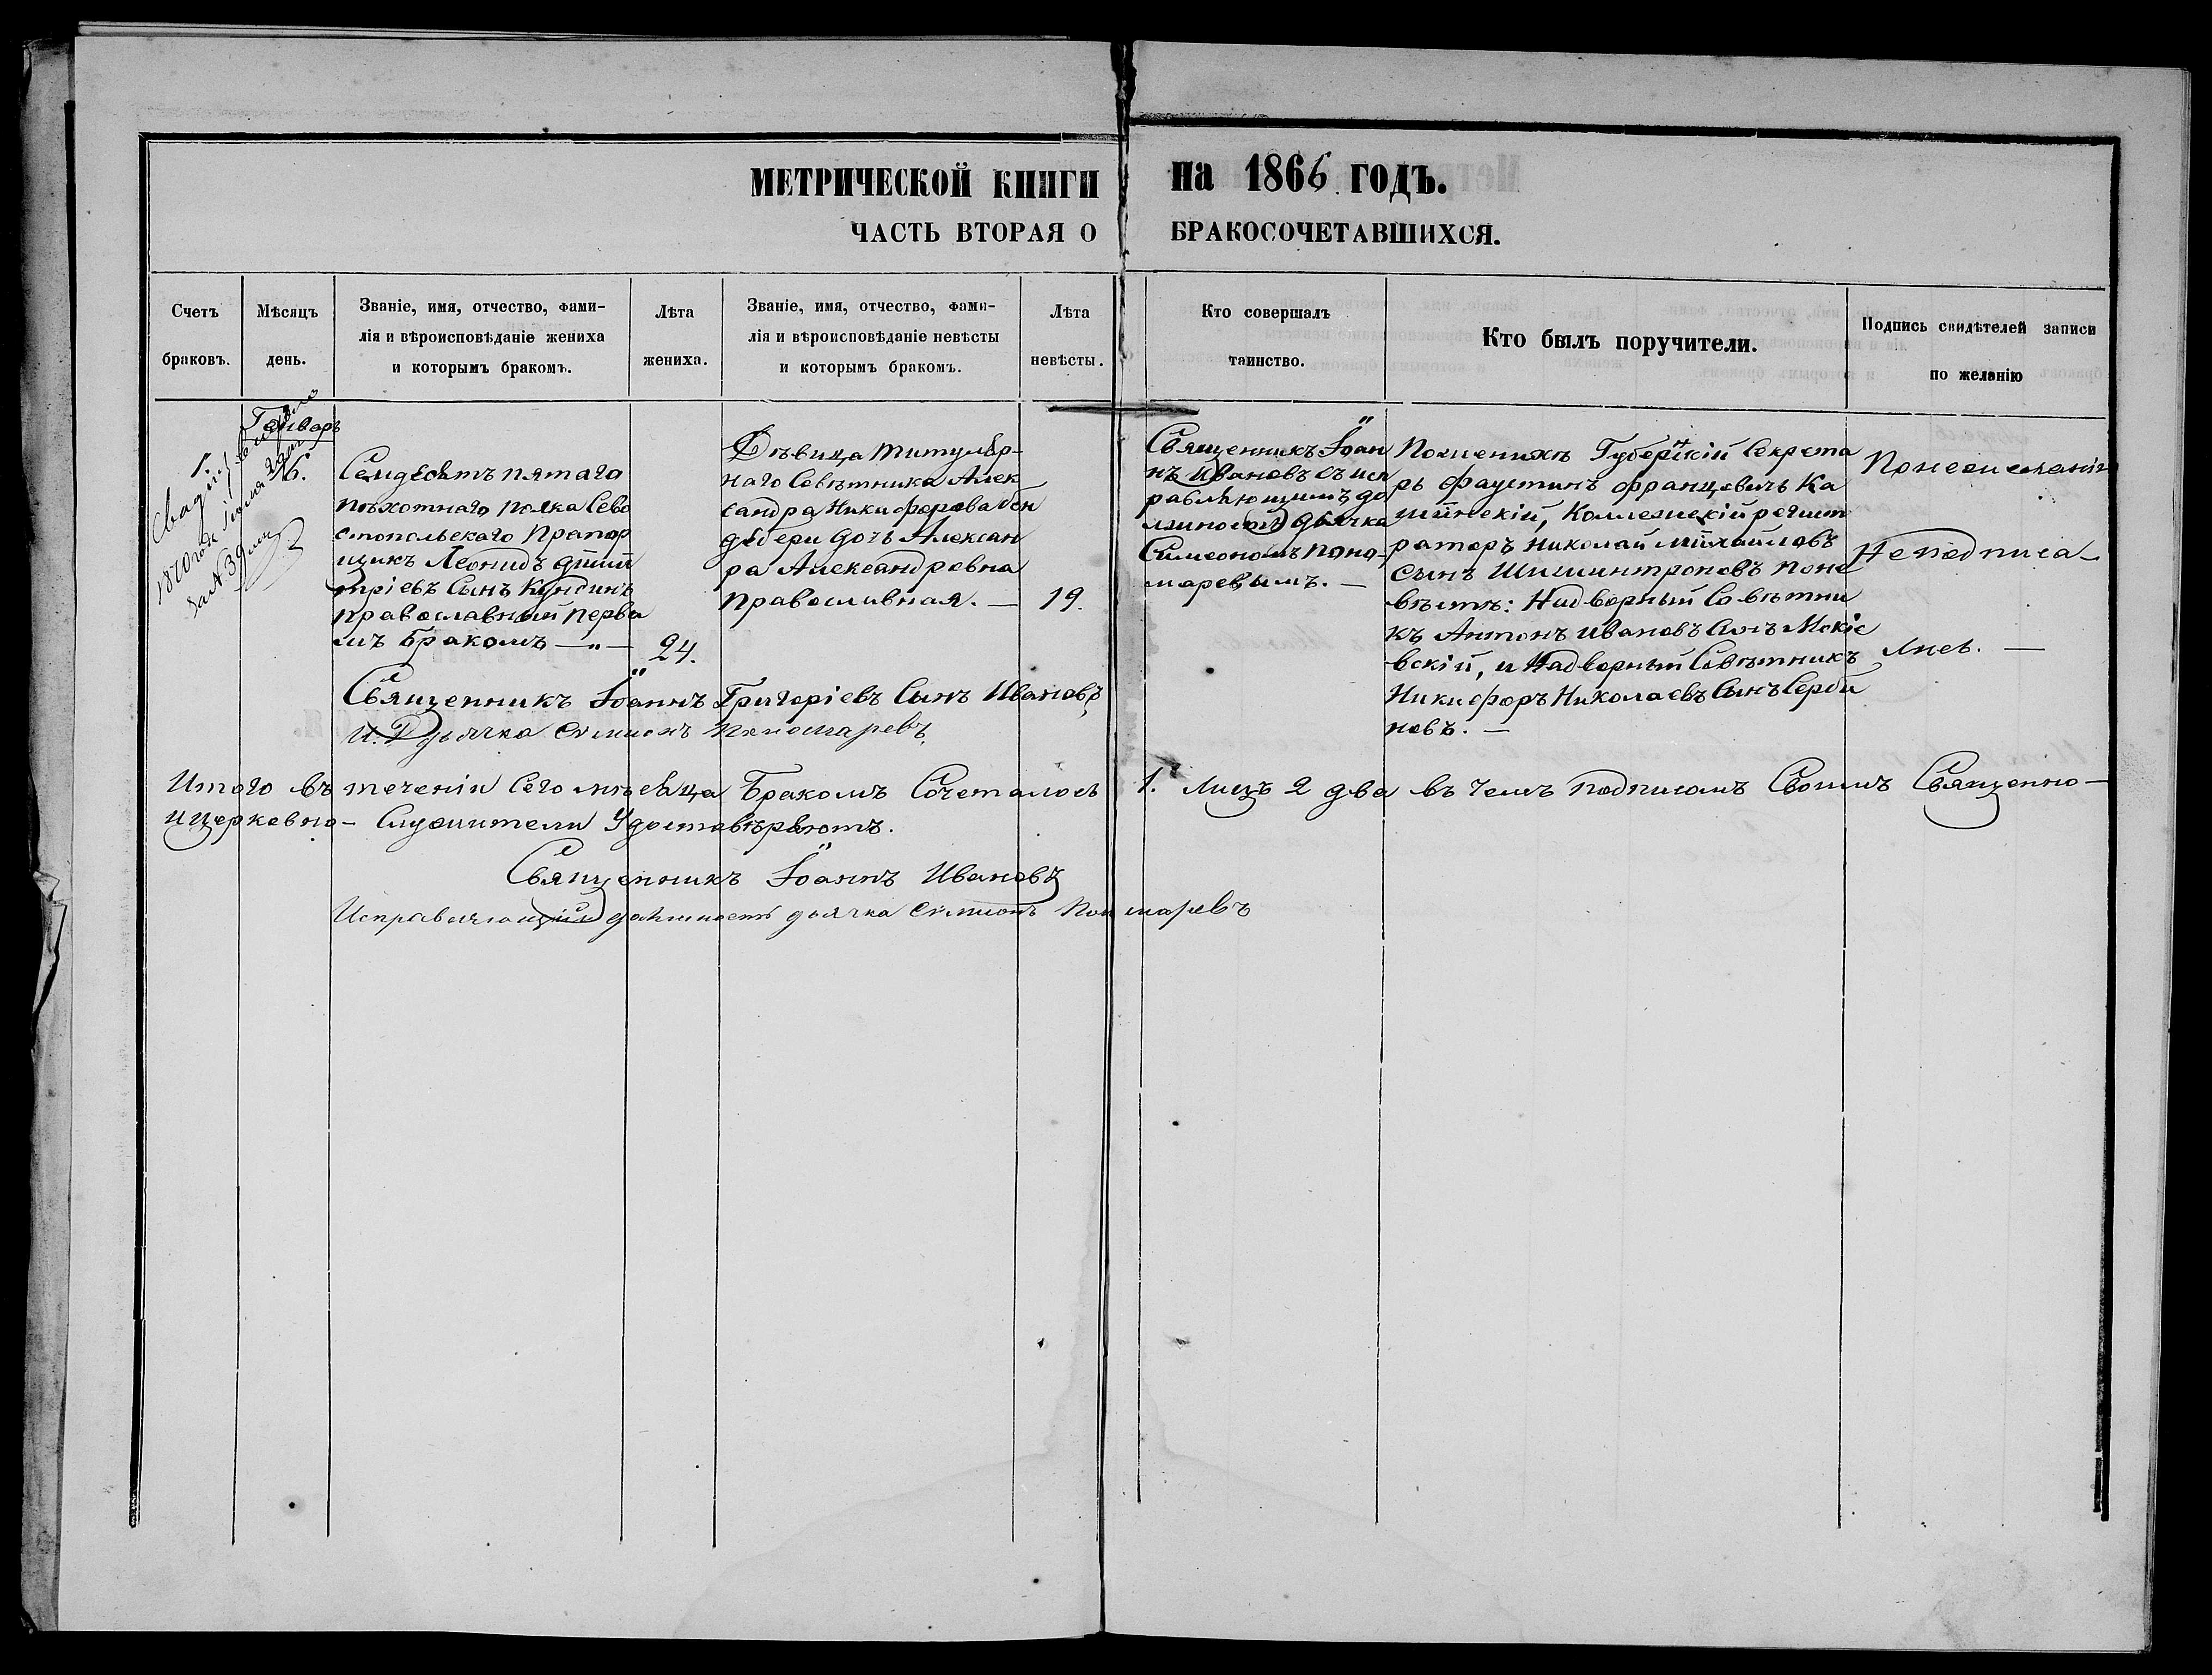 МЕТРИЧЕСКОЙ КНИГИ на 1866 годъ.
ЧАСТЬ ВТОРАЯ О БРАКОСОЧЕТАВШИХСЯ.
Счетъ
браковъ.
Мѣсяцъ
день.
Званіе, имя, отчество, фами-
лія и вѣроисповѣданіе жениха
и которымъ бракомъ.
Лѣта
жениха.
Званіе, имя, отчество, фами-
лія и вѣроисповѣданіе невѣсты
и которымъ бракомъ.
Лѣта
невѣсты.
Кто совершалъ
таинство.
Кто былъ поручители.
Подпись свидѣтелей записи
по желанію
1.
1870 года
за № 39
Генварь
16.
Семдесятъ пятаго
пѣхотнаго полка Сева
стопольскаго Прапор
щикъ Леонидъ Дими
тріевъ Сынъ Кундинъ
православный перва
мъ бракомъ —„—
24.
Дѣвица титуляр-
наго Совѣтника Алек
сандра Никифорова Ген
дебери дочь Алексан
ра Александровна
православная. —
19.
Священникъ Іоан
нъ Ивановъ съ исп
равляющимъ до
лжность дьячка
Симеономъ Поно-
маревымъ. —
По женихѣ Губернскій Секрета
рь Фаустинъ Францовичъ Ка
минскій, Коллежскій регист
раторъ Николай Михайловъ
сынъ Шишинтроповъ по не
вѣстѣ: Надворный Совѣтни
къ Антонъ Ивановъ Сынъ Мокіе
вскій, и Надворный Совѣтникъ
Никифоръ Николаевъ Сынъ Серби
новъ. —
По нежеланію
Неподписа
лись. —
Священникъ Іоаннъ Григоріевъ Сынъ Ивановъ
И. Д. дьячка Симеонъ Пономаревъ
Итого въ теченіи Сего мѣсяца Бракомъ Сочеталось 1. Лицъ 2 два въ чемъ подписомъ Своимъ Священно-
и церковно- Служители Удостовѣряютъ.
Священникъ Іоаннъ Ивановъ
Исправляющій должность дьячка Симеонъ Пономаревъ